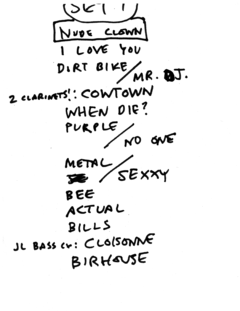 SET 1
NUDE CLOWN
I LOVE YOU
DIRT BIKE / MR. J.
2 CLARINETS!: COWTOWN
WHEN DIE?
PURPLE / NO ONE
METAL / SEXXY
BEE
ACTUAL
BILLS
JL BASS CL: CLOISONNE
BIRHOUSE